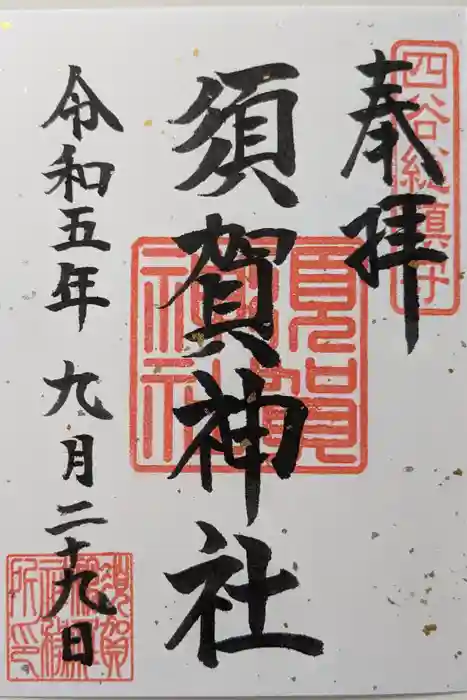 四谷総鎮守
奉拝
須賀神社
須賀神社
令和五年 九月二十九日
須賀神社社務所印